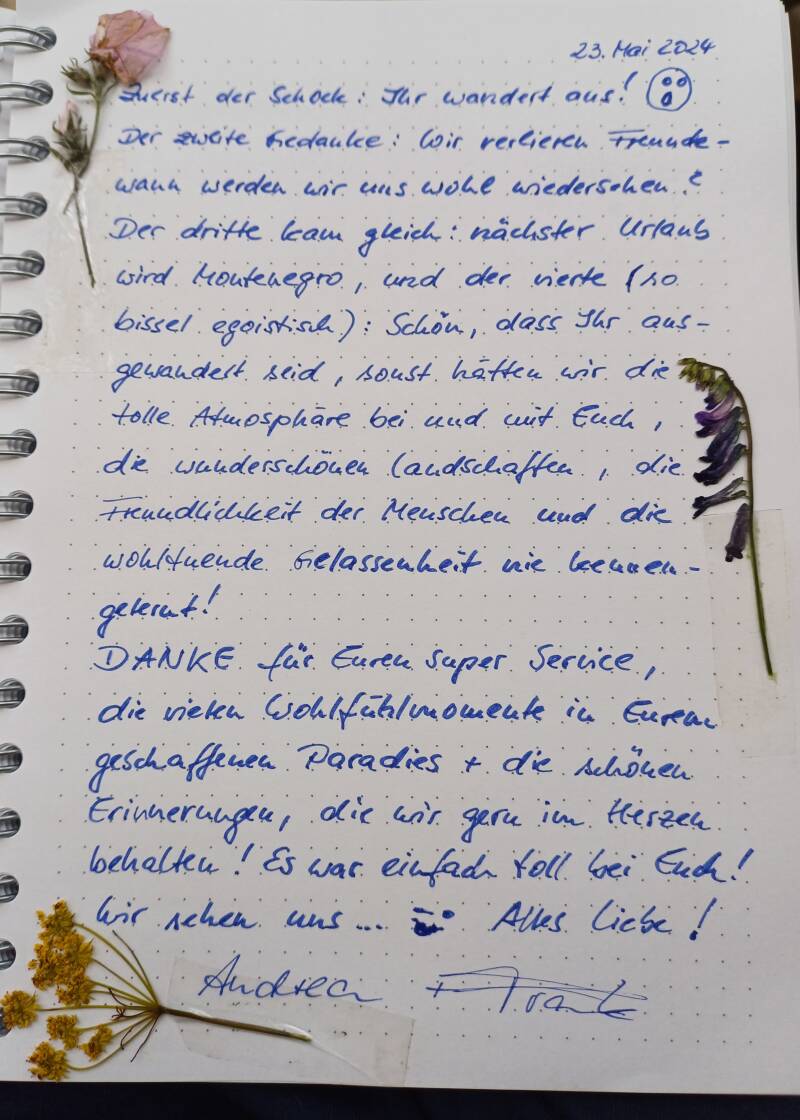 23. Mai 2024
Zuerst der Schock: Ihr wandert aus!
Der zweite Gedanke: Wir verlieren Freunde -
wann werden wir uns wohl wiedersehen?
Der dritte kam gleich: nächster Urlaub
wird Montenegro, und der vierte (so
bissel egoistisch): Schön, dass Ihr aus-
gewandert seid, sonst hätten wir die
tolle Atmosphäre bei und mit Euch,
die wunderschönen Landschaften, die
Freundlichkeit der Menschen und die
wohltuende Gelassenheit nie kennen-
gelernt!
DANKE für Euren super Service,
die vielen Wohlfühlmomente in Eurem
geschaffenen Paradies + die schönen
Erinnerungen, die wir gern im Herzen
behalten! Es war einfach toll bei Euch!
Wir sehen uns... Alles Liebe!
Andrea + Frank